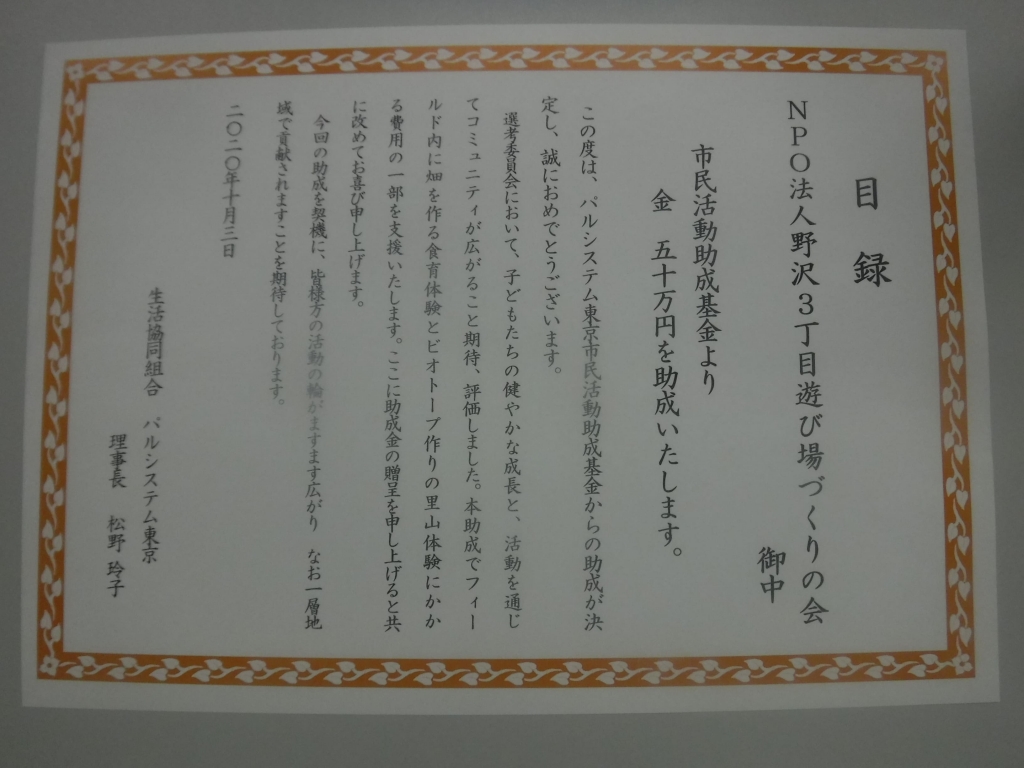 目 録
NPO法人野沢3丁目遊び場づくりの会
御中
市民活動助成基金より
金 五十万円を助成いたします。
この度は、パルシステム東京市民活動助成基金からの助成が決
定し、誠におめでとうございます。
選考委員会において、子どもたちの健やかな成長と、活動を通じ
てコミュニティが広がること期待、評価しました。本助成でフィー
ルド内に畑を作る食育体験とビオトープ作りの里山体験にかか
る費用の一部を支援いたします。ここに助成金の贈呈を申し上げると共
に改めてお喜び申し上げます。
今回の助成を契機に、皆様方の活動の輪がますます広がり なお一層地
域で貢献されますことを期待しております。
二〇二〇年十月三日
生活協同組合 パルシステム東京
理事長 松野 玲子